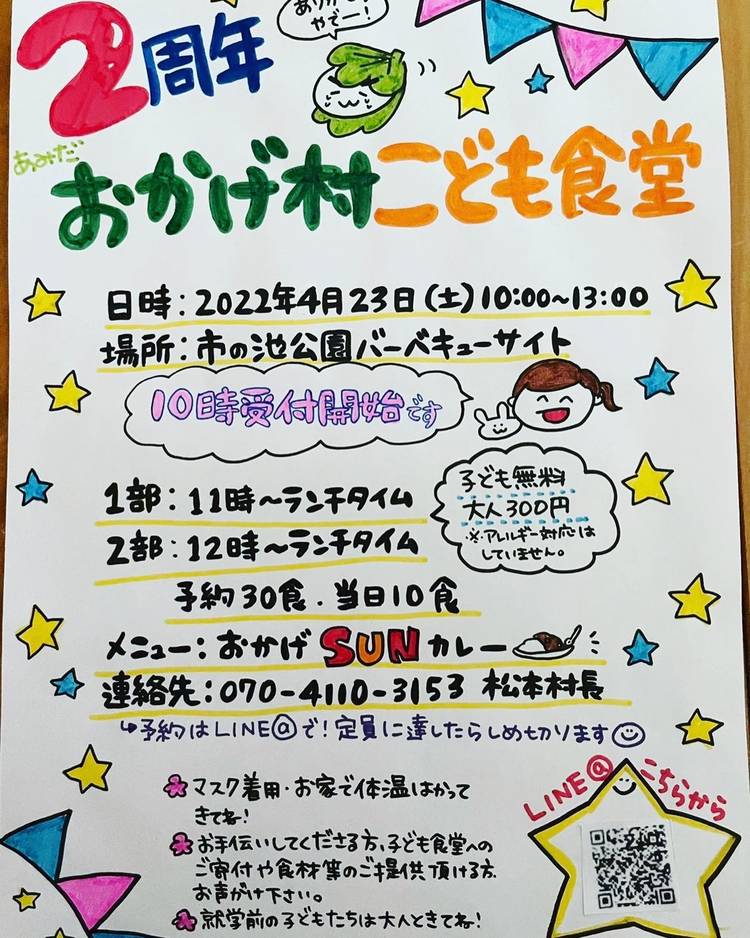 やでー！
2周年
あみだ
おかげ村こども食堂
日時：2022年4月23日(土)10:00〜13:00
場所：市の池公園バーベキューサイト
10時受付開始です
1部：11時〜ランチタイム
2部：12時〜ランチタイム
子ども無料
大人300円
※アレルギー対応は
していません。
予約30食．当日10食
メニュー：おかげSUNカレー
連絡先：070-4110-3153 松本村長
↳予約はLINE@で！定員に達したらしめ切ります
LINE@こちらから
マスク着用・お家で体温はかって
きてね！
お手伝いしてくださる方、子ども食堂への
ご寄付や食材等のご提供頂ける方
お声がけ下さい。
就学前の子どもたちは大人ときてね！